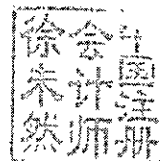 中国注册
会计师
徐未然